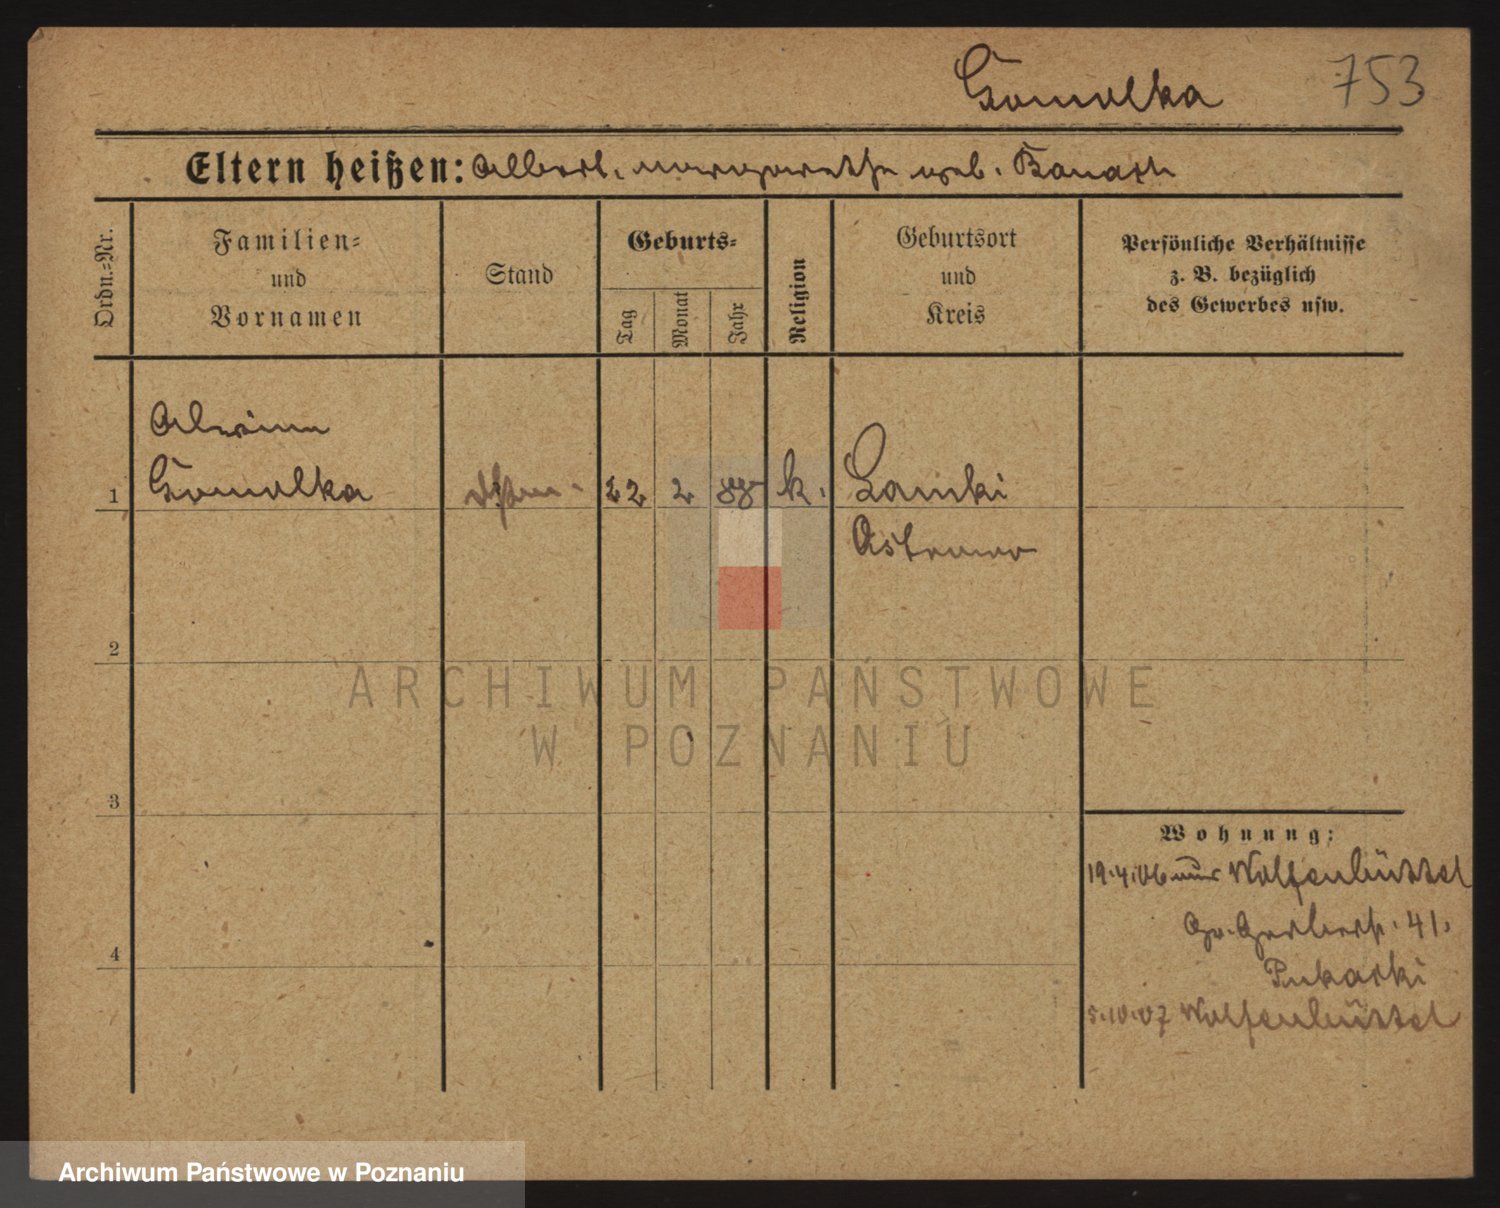 Gomolka 753
Eltern heißen: Albert. Margarethe geb. Banach
Ordn.-Nr.
Familien-
und
Vornamen
Stand
Geburts-
Tag
Monat
Jahr
Religion
Geburtsort
und
Kreis
Persönliche Verhältnisse
z. B. bezüglich
des Gewerbes usw.
Alwine
1 Gomolka 22 2 88 k. Lamki
Ostrowo
2
ARCHIWUM PAŃSTWOWE
W POZNANIU
3
Wohnung:
19.4.06 Wolfenbüttel
Gr. Gerberstr. 41.
4
5.10.07 Wolfenbüttel
Archiwum Państwowe w Poznaniu